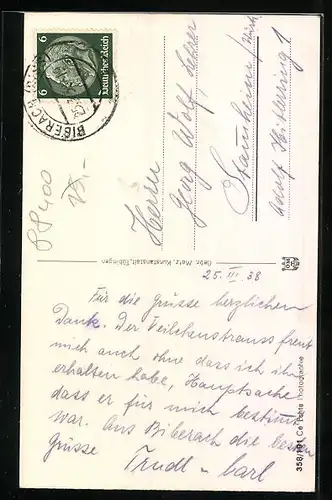 6 Deutsches Reich 6
BIBERACH
Herrn
Georg Wolf, Lehrer
Stammheim
Adolf Hitlerring 1
Gebr. Metz, Kunstanstalt, Tübingen
25. III. 38
Für die Grüsse herzlichen
Dank. Der Veilchenstrauss freut
mich auch ohne dass ich ihn
erhalten habe, Hauptsache
dass er für mich bestimmt
war. Aus Biberach die besten
Grüsse
Trudl – Carl
Echte Photographie